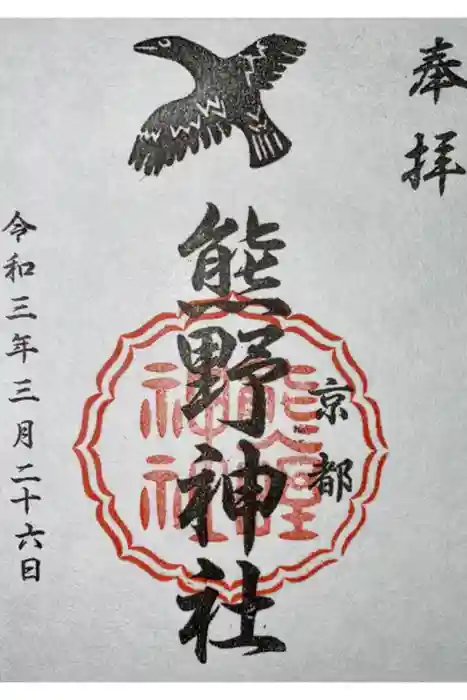 奉拝
京都
熊野神社
令和三年三月二十六日
熊野
神社